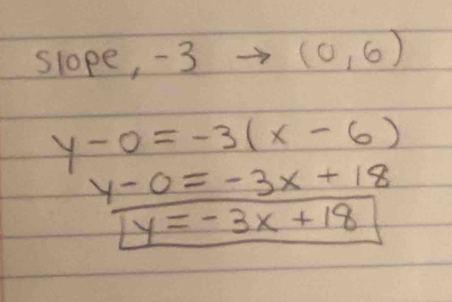 slope, -3 → (0,6)
y-0 = -3(x - 6)
y-0 = -3x + 18
y = -3x + 18